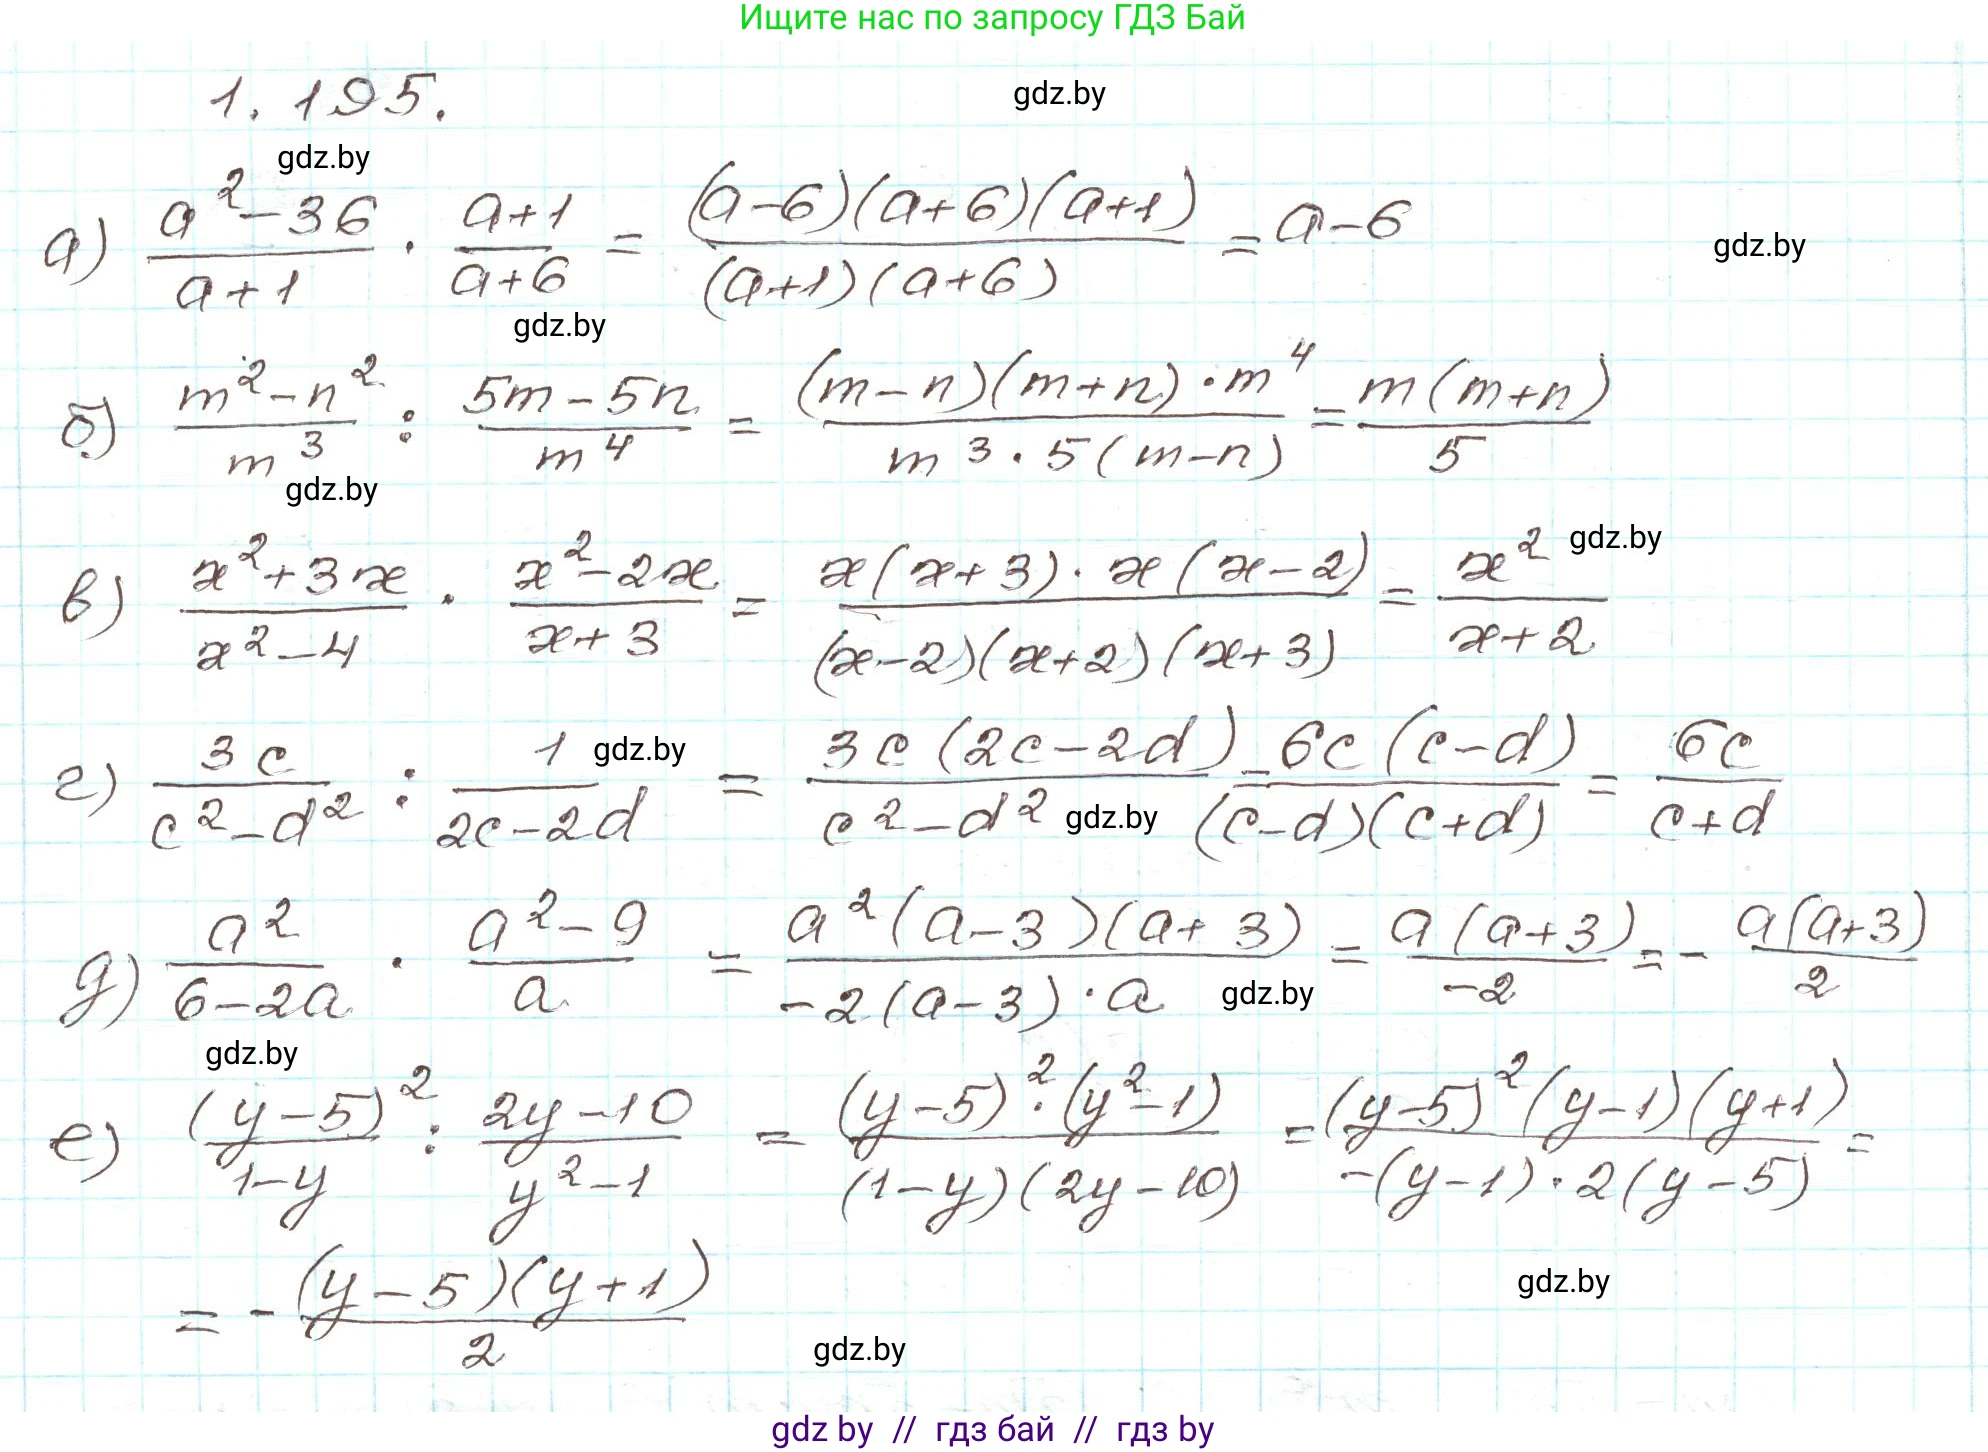 Ищите нас по запросу ГДЗ Бай
1.195.
gdz.by
gdz.by
а) (a²-36)/(a+1) · (a+1)/(a+6) = ((a-6)(a+6)(a+1))/((a+1)(a+6)) = a-6
gdz.by
gdz.by
б) (m²-n²)/m³ : (5m-5n)/m⁴ = ((m-n)(m+n)·m⁴)/(m³·5(m-n)) = (m(m+n))/5
gdz.by
gdz.by
в) (x²+3x)/(x²-4) · (x²-2x)/(x+3) = (x(x+3)·x(x-2))/((x-2)(x+2)(x+3)) = x²/(x+2)
г) 3c/(c²-d²) : 1/(2c-2d) = (3c(2c-2d))/(c²-d²) = (6c(c-d))/((c-d)(c+d)) = 6c/(c+d)
gdz.by
gdz.by
д) a²/(6-2a) · (a²-9)/a = (a²(a-3)(a+3))/(-2(a-3)·a) = (a(a+3))/(-2) = - (a(a+3))/2
gdz.by
gdz.by
е) (y-5)²/(1-y) : (2y-10)/(y²-1) = ((y-5)²·(y²-1))/((1-y)(2y-10)) = ((y-5)²(y-1)(y+1))/(-(y-1)·2(y-5)) =
= - ((y-5)(y+1))/2
gdz.by
gdz.by
gdz by // гдз бай // гдз by